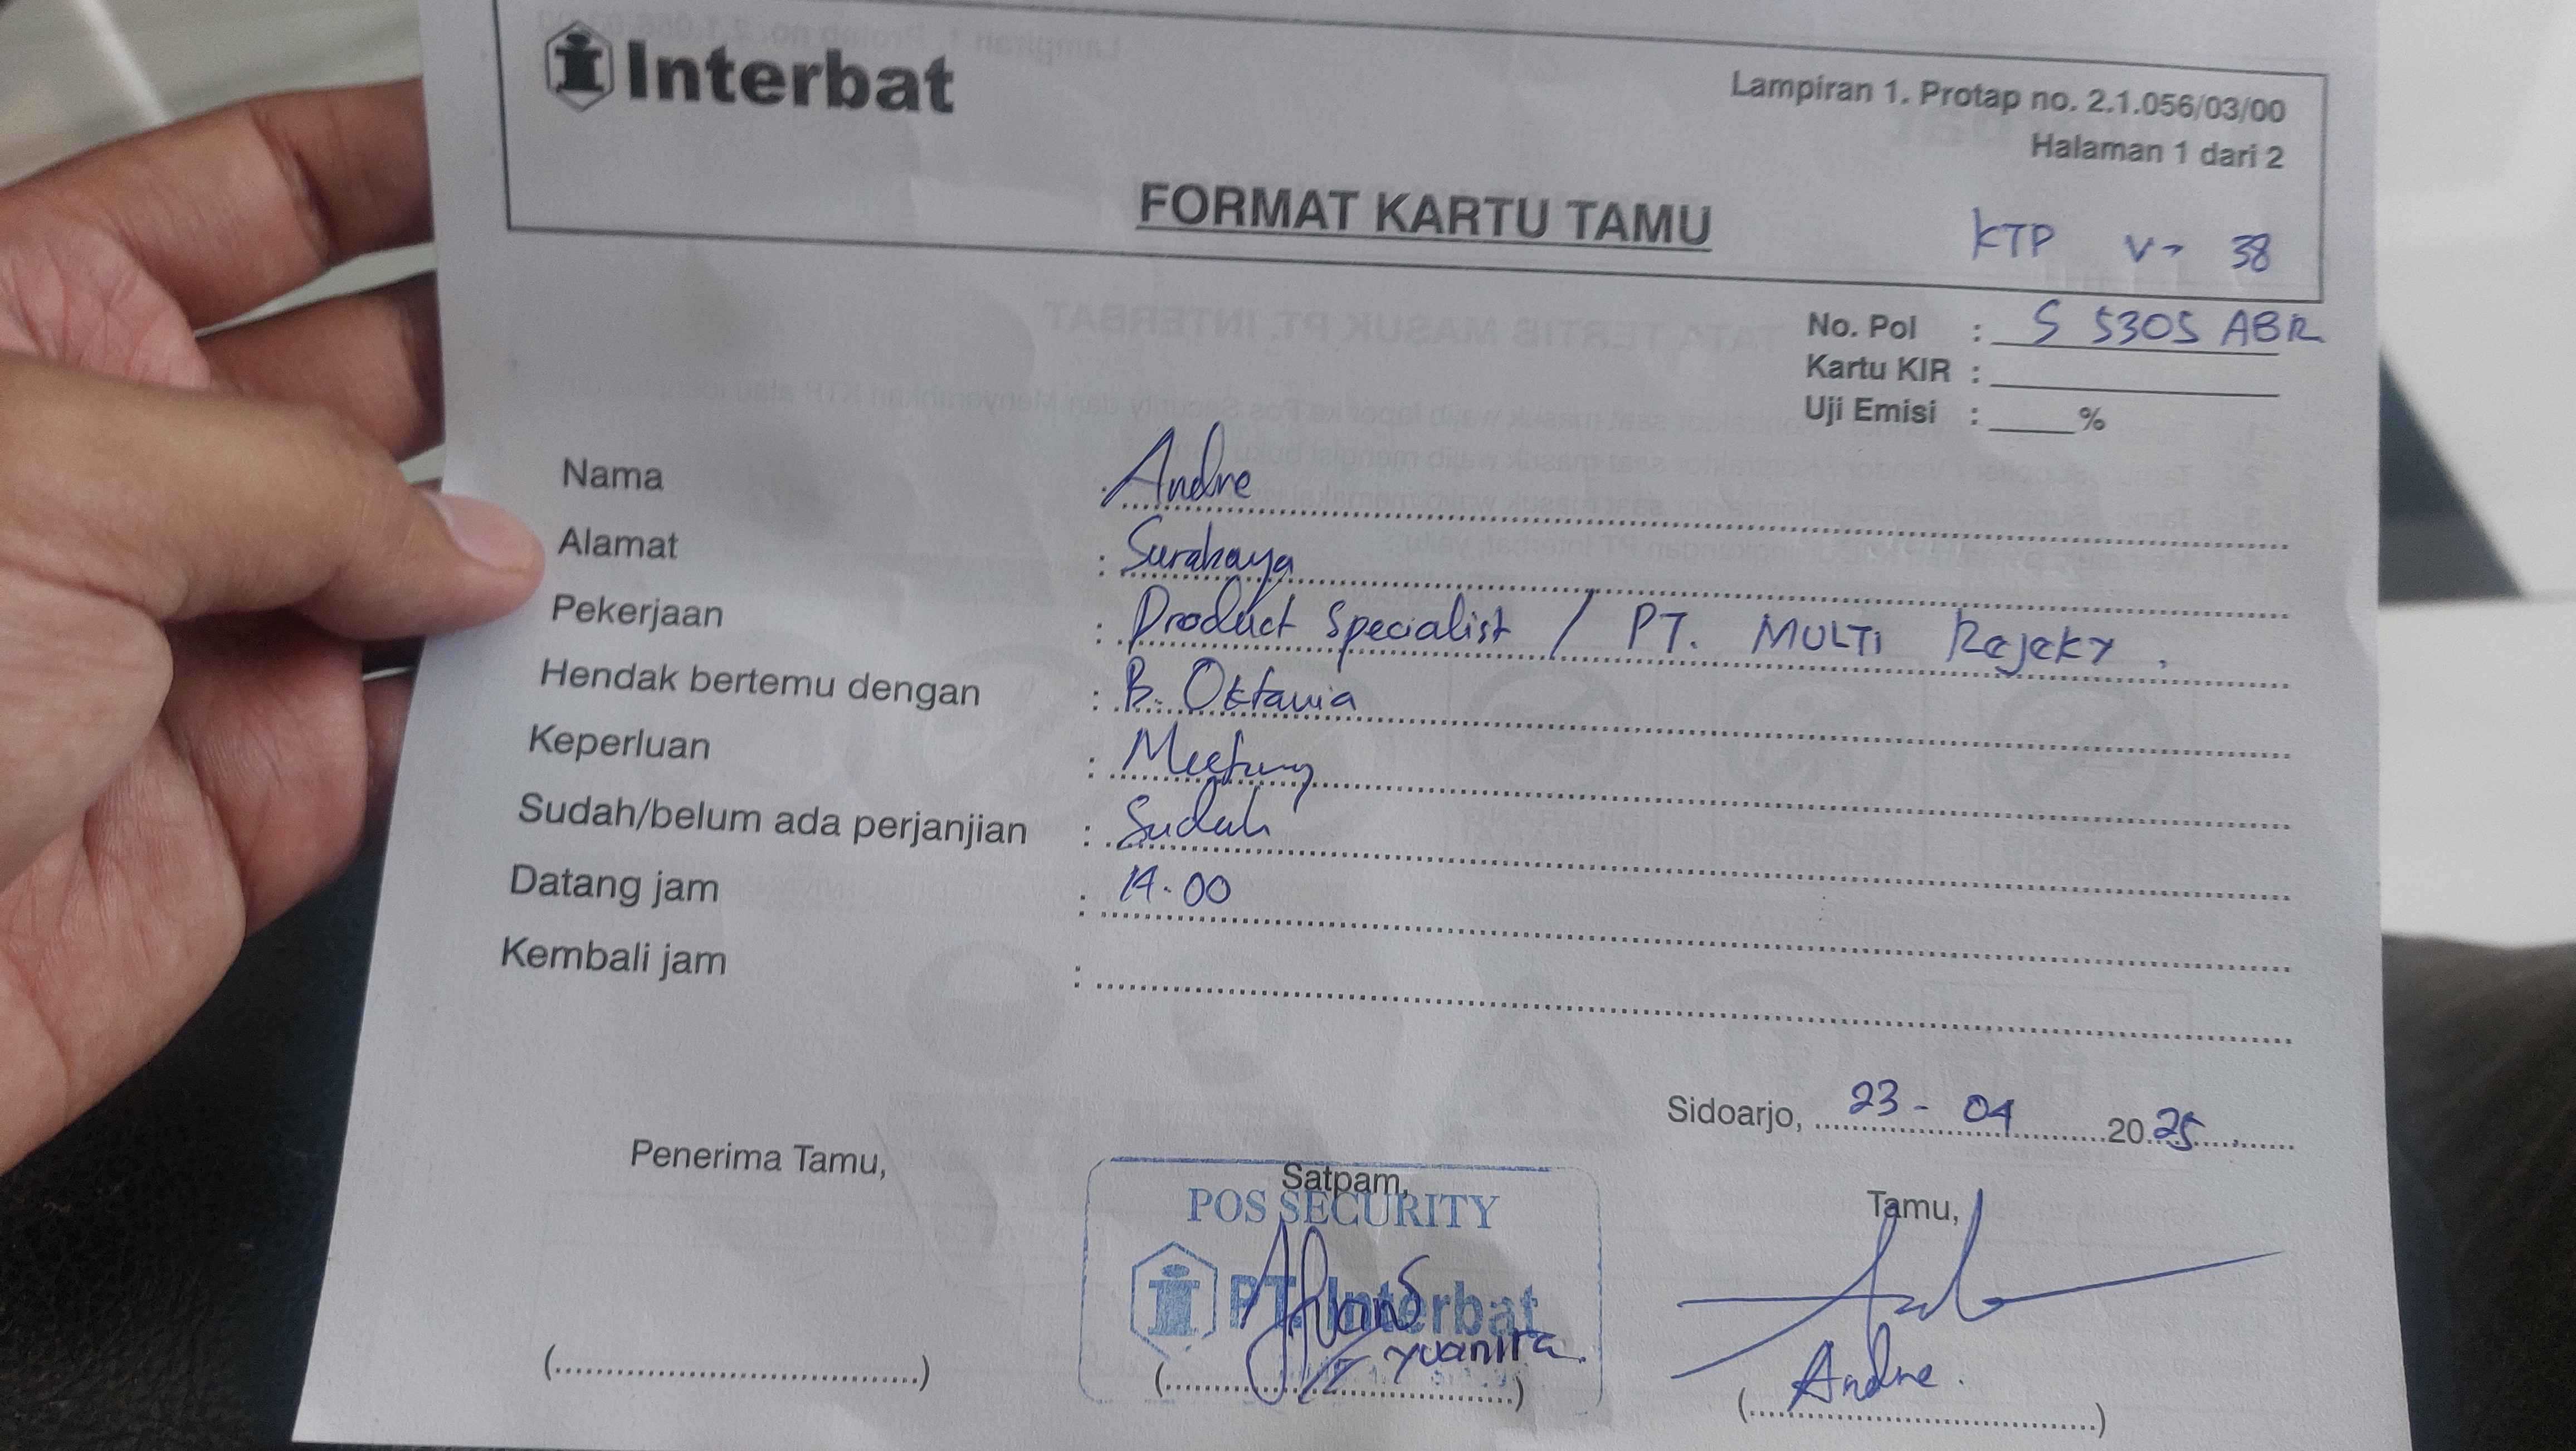 Interbat
Lampiran 1. Protap no. 2.1.056/03/00
Halaman 1 dari 2
FORMAT KARTU TAMU
KTP V- 38
No. Pol : S 5305 ABR
Kartu KIR :
Uji Emisi : %
Nama : Andre
Alamat : Surabaya
Pekerjaan : Product Specialist / PT. MULTI Rejeky.
Hendak bertemu dengan : B. Oktavia
Keperluan : Meeting
Sudah/belum ada perjanjian : Sudah
Datang jam : 14.00
Kembali jam :
Sidoarjo, 23 - 04 2025
Penerima Tamu,
Satpam,
Tamu,
POS SECURITY
PT. Interbat
yuanita
(Andre.)